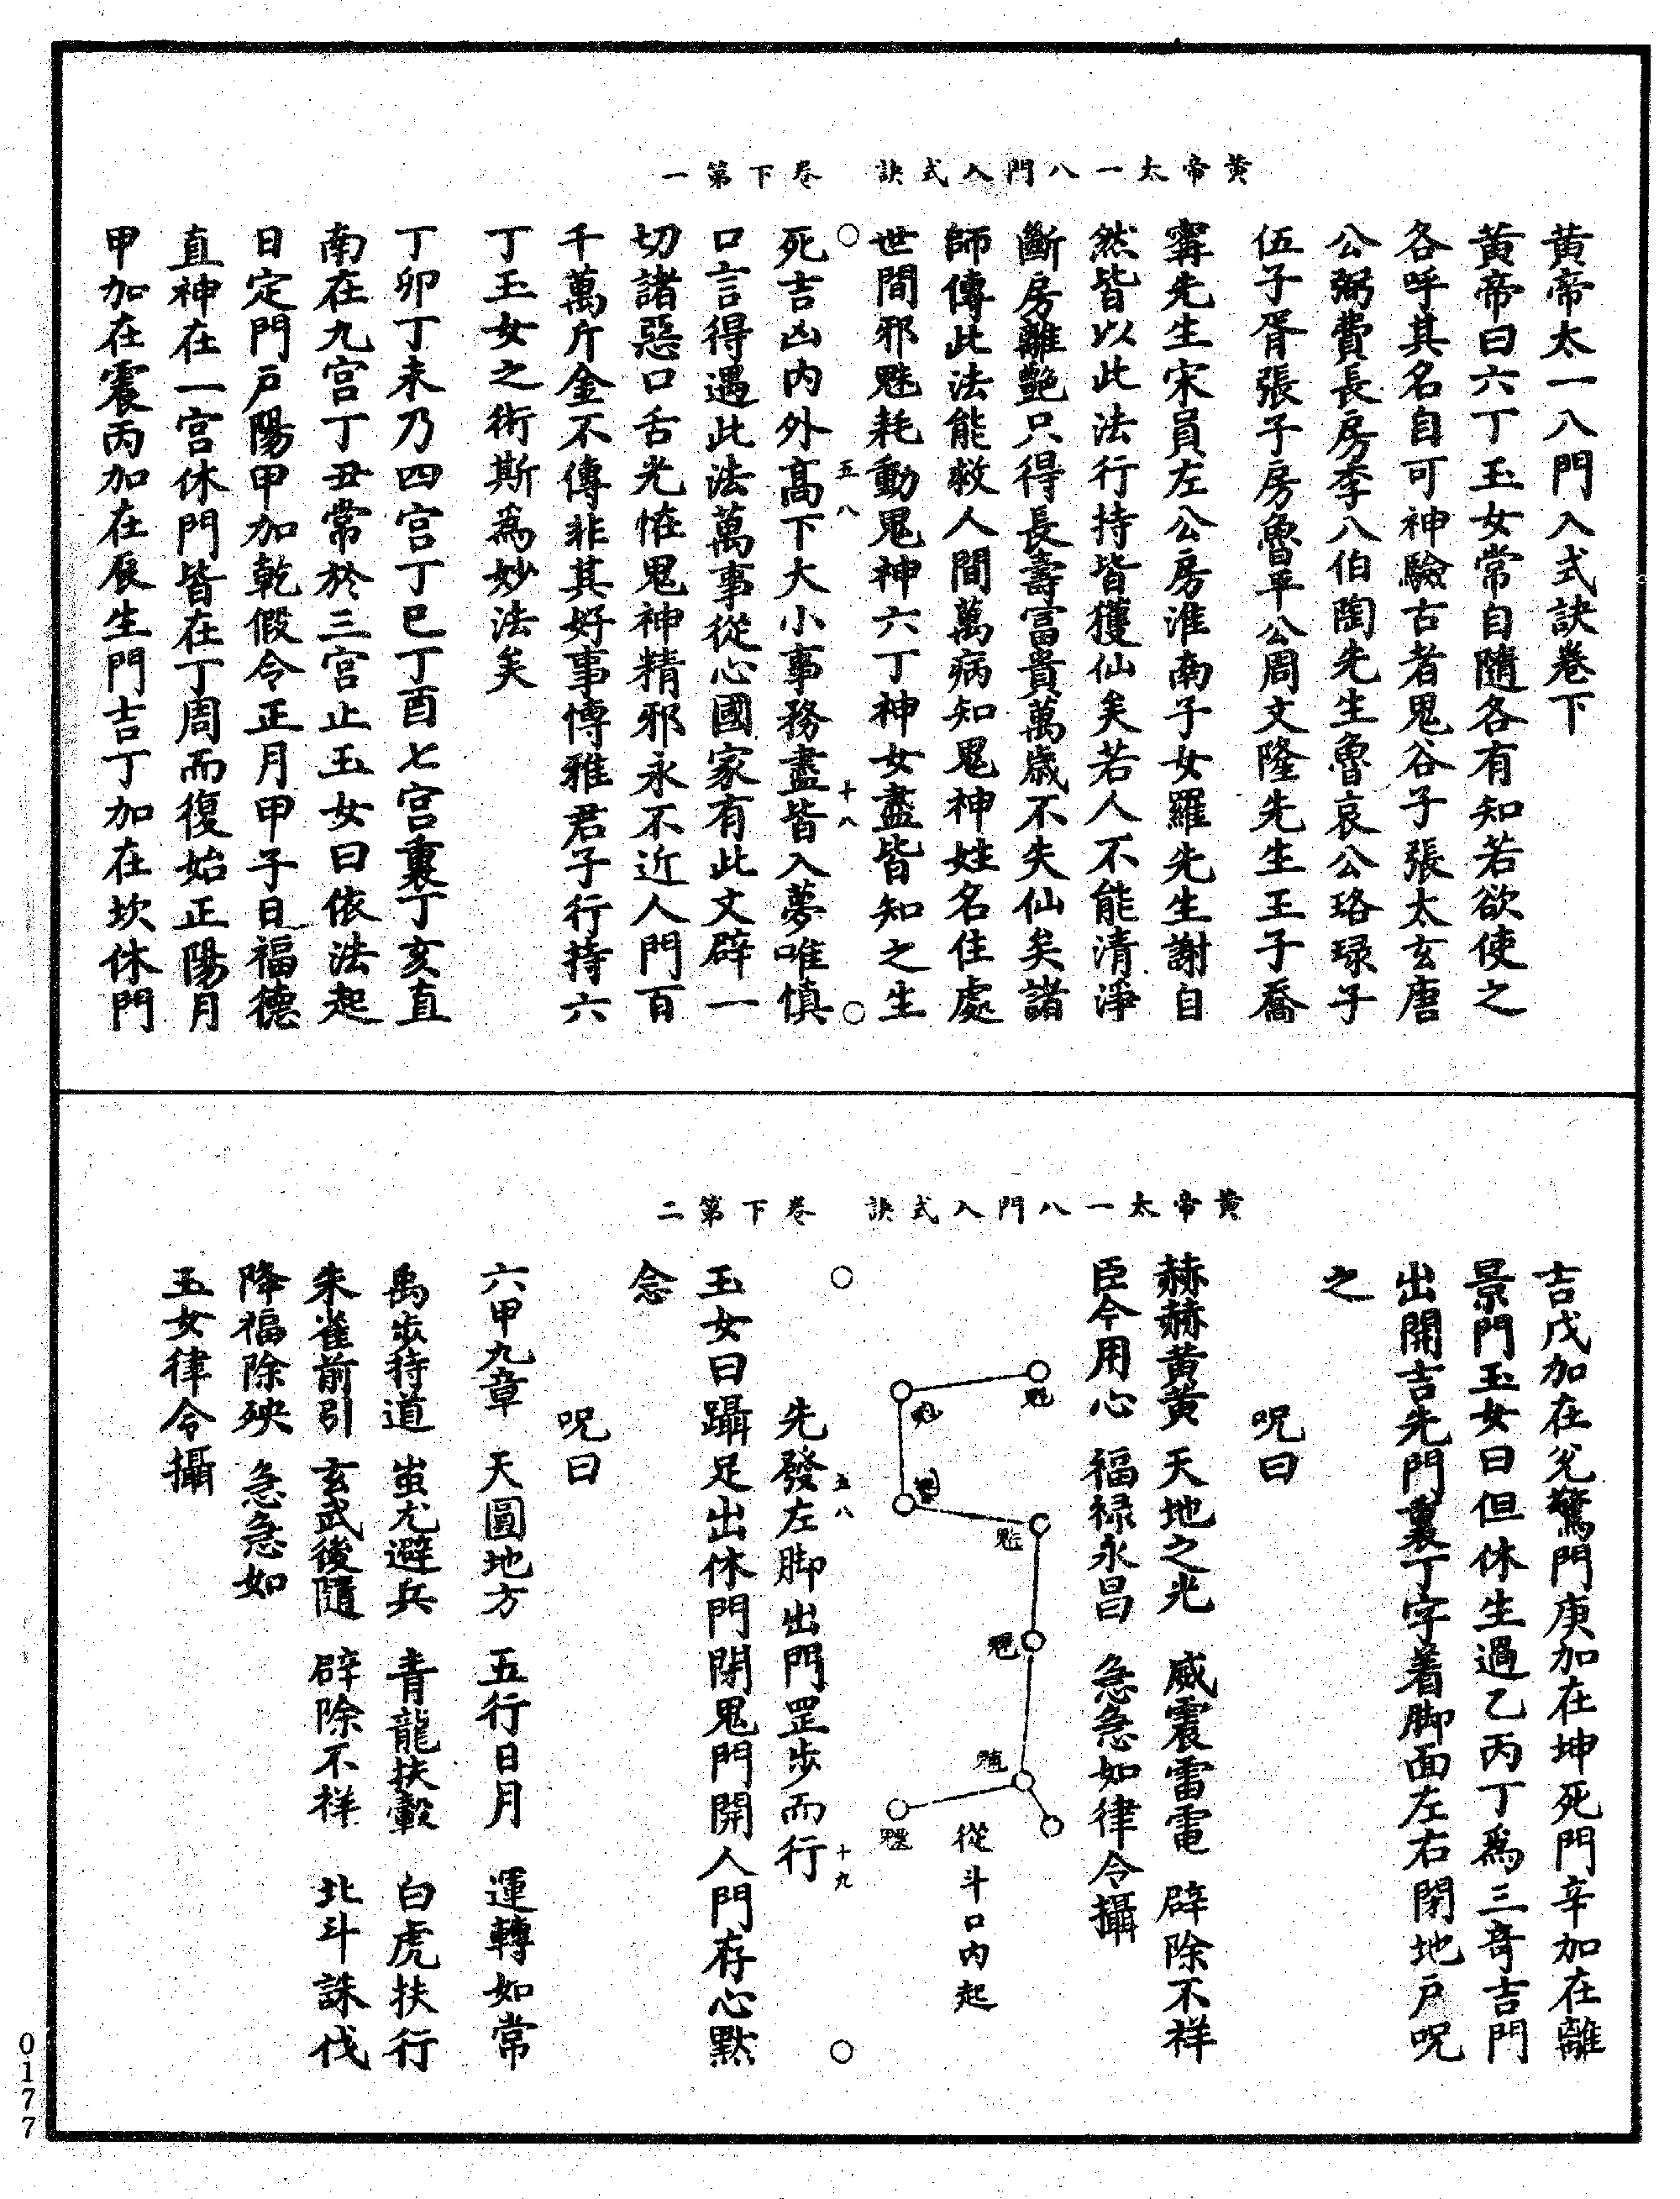 黃帝太一八門入式訣　卷下第一
黃帝太一八門入式訣卷下
黃帝曰六丁玉女常自隨各有知若欲使之
各呼其名自可神驗古者鬼谷子張太玄唐
公弼費長房李八伯陶先生魯哀公珞琭子
伍子胥張子房魯平公周文隆先生王子喬
寗先生宋員左公房淮南子女羅先生謝自
然皆以此法行持皆獲仙矣若人不能清淨
斷房離艶只得長壽富貴萬歲不失仙矣諸
師傳此法能救人間萬病知鬼神姓名住處
世間邪魅耗動鬼神六丁神女盡皆知之生
五八
十八
死吉凶內外高下大小事務盡皆入夢唯慎
口言得遇此法萬事從心國家有此文辟一
切諸惡口舌光恠鬼神精邪永不近人門百
千萬斤金不傳非其好事博雅君子行持六
丁玉女之術斯為妙法矣
丁卯丁未乃四宮丁巳丁酉七宮裏丁亥直
南在九宮丁丑常於三宮止玉女曰依法起
日定門戶陽甲加乾假令正月甲子日福德
直神在一宮休門皆在丁周而復始正陽月
甲加在震丙加在辰生門吉丁加在坎休門
黃帝太一八門入式訣　卷下第二
吉戊加在兌驚門庚加在坤死門辛加在離
景門玉女曰但休生過乙丙丁為三奇吉門
出開吉先門裏丁字着脚面左右閉地戶呪
之
呪曰
赫赫黃黃　天地之光　威震雷電　辟除不祥
臣今用心　福祿永昌　急急如律令攝
魁
魓
從斗口內起
五八
十九
先發左脚出門罡步而行
玉女曰躡足出休門閉鬼門開人門存心默
念
呪曰
六甲九章　天圓地方　五行日月　運轉如常
禹步待道　蚩尤避兵　青龍扶轂　白虎扶行
朱雀前引　玄武後隨　辟除不祥　北斗誅伐
降福除殃　急急如
玉女律令攝
0177